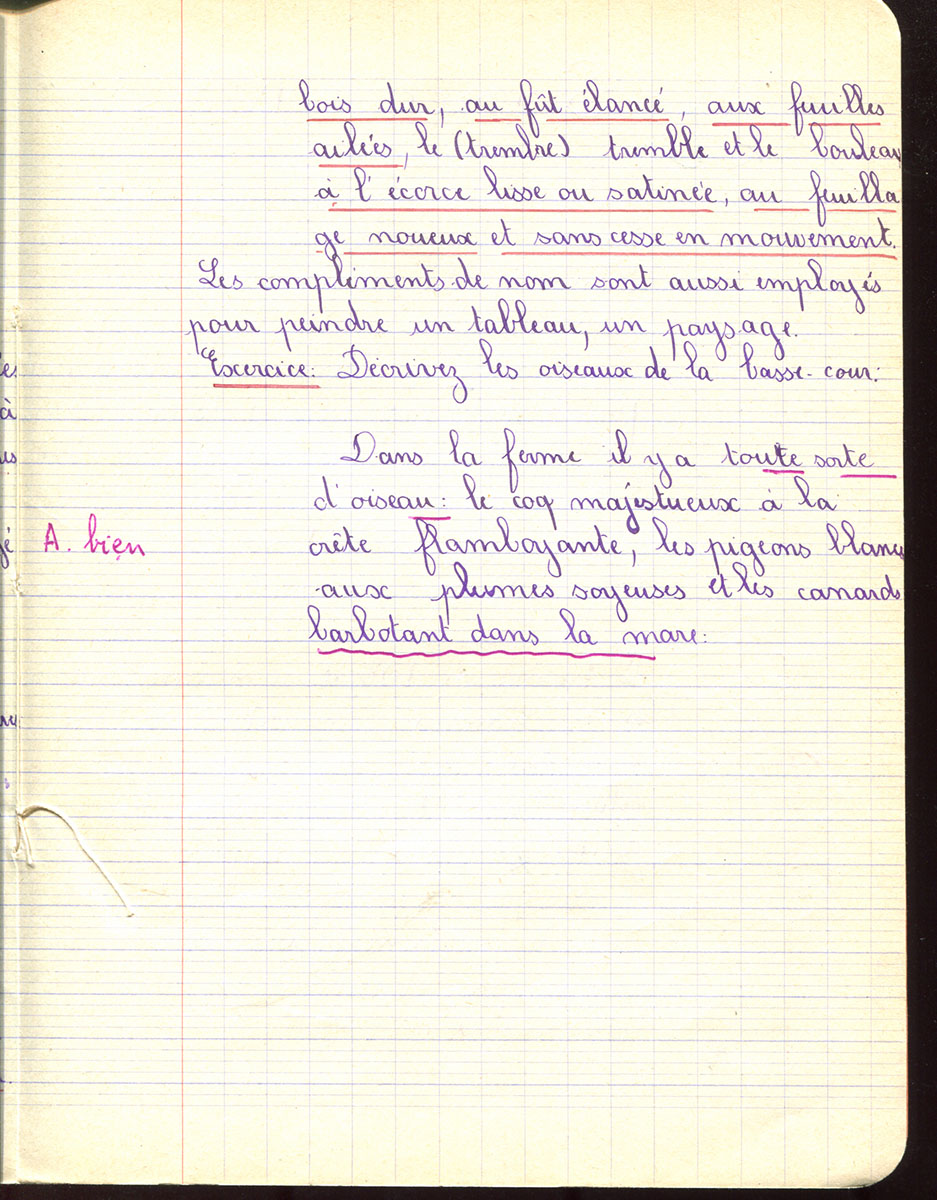 bois dur, au fût élancé, aux feuilles
ailées, le (trembre) tremble et le bouleau
à l'écorce lisse ou satinée, au feuilla
ge noueux et sans cesse en mouvement.
Les compliments de nom sont aussi employés
pour peindre un tableau, un paysage.
Exercice: Décrivez les oiseaux de la basse-cour:
Dans la ferme il y a toute sorte
d'oiseau: le coq majestueux à la
A. bien
crête flamboyante, les pigeons blancs
aux plumes soyeuses et les canards
barbotant dans la mare: